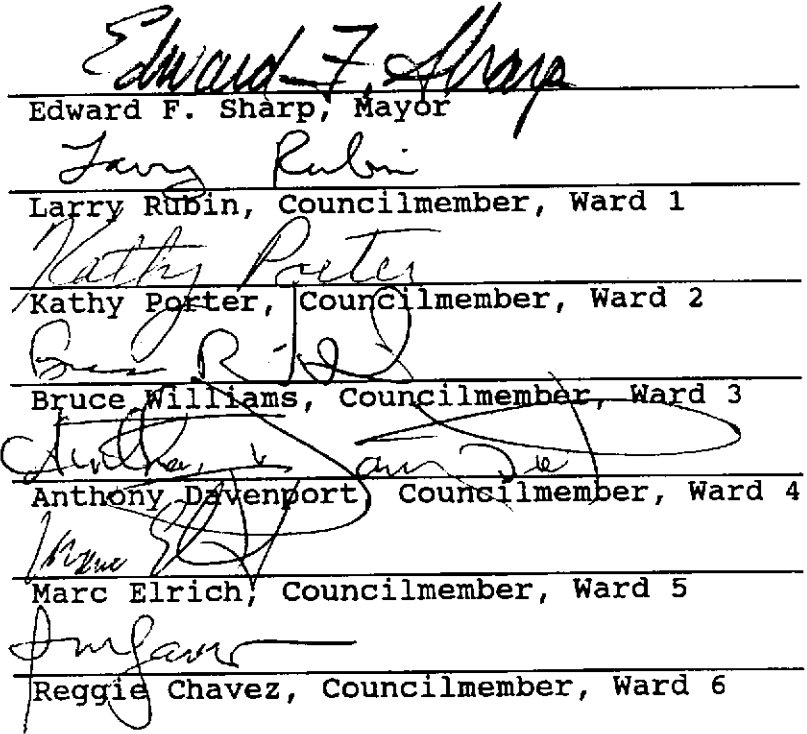 Edward F. Sharp
Edward F. Sharp, Mayor
Larry Rubin
Larry Rubin, Councilmember, Ward 1
Kathy Porter
Kathy Porter, Councilmember, Ward 2
Bruce Williams, Councilmember, Ward 3
Anthony Davenport, Councilmember, Ward 4
Marc Elrich, Councilmember, Ward 5
Reggie Chavez, Councilmember, Ward 6